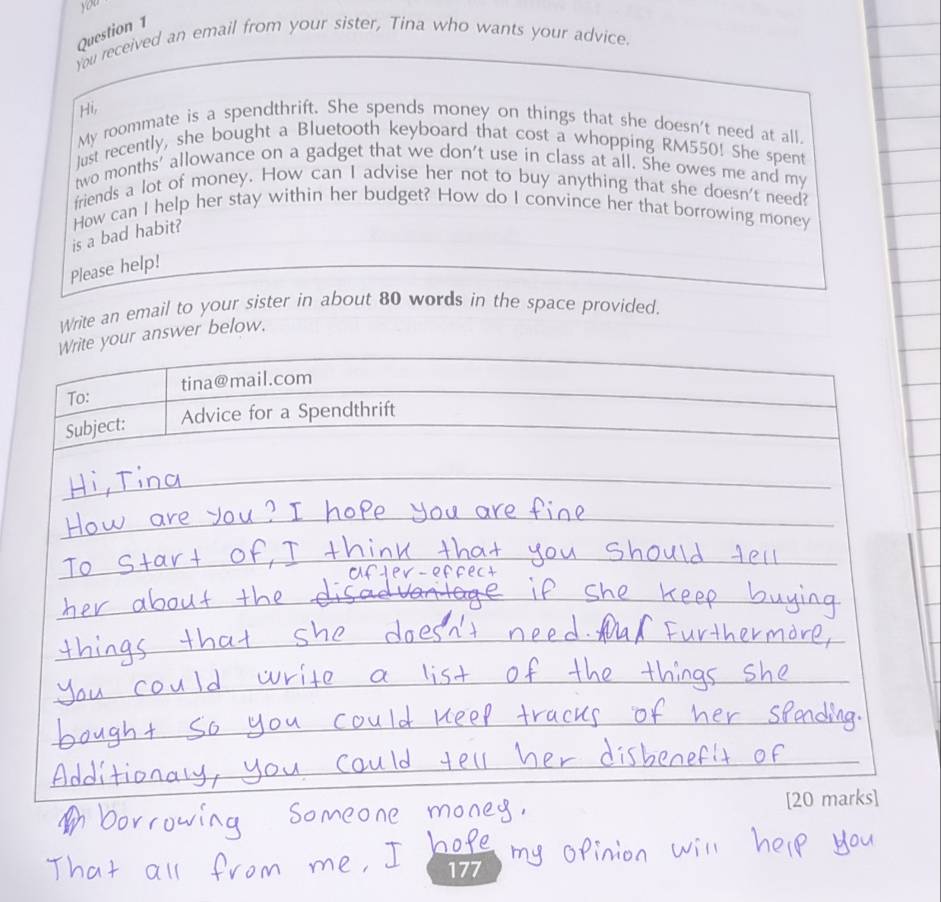 you
Question 1
You received an email from your sister, Tina who wants your advice.
Hi,
My roommate is a spendthrift. She spends money on things that she doesn't need at all.
Just recently, she bought a Bluetooth keyboard that cost a whopping RM550! She spent
two months' allowance on a gadget that we don't use in class at all. She owes me and my
friends a lot of money. How can I advise her not to buy anything that she doesn't need?
How can I help her stay within her budget? How do I convince her that borrowing money
is a bad habit?
Please help!
Write an email to your sister in about 80 words in the space provided.
Write your answer below.
To: tina@mail.com
Subject: Advice for a Spendthrift
Hi, Tina
How are you? I hope you are fine
To start of, I think that you should tell
after-effect
her about the disadvantage if she keep buying
things that she doesn't need. Furthermore,
you could write a list of the things she
bought so you could keep tracks of her spending.
Additionaly, you could tell her disbenefit of
[20 marks]
borrowing someone money.
That all from me, I hope my opinion will help you
177